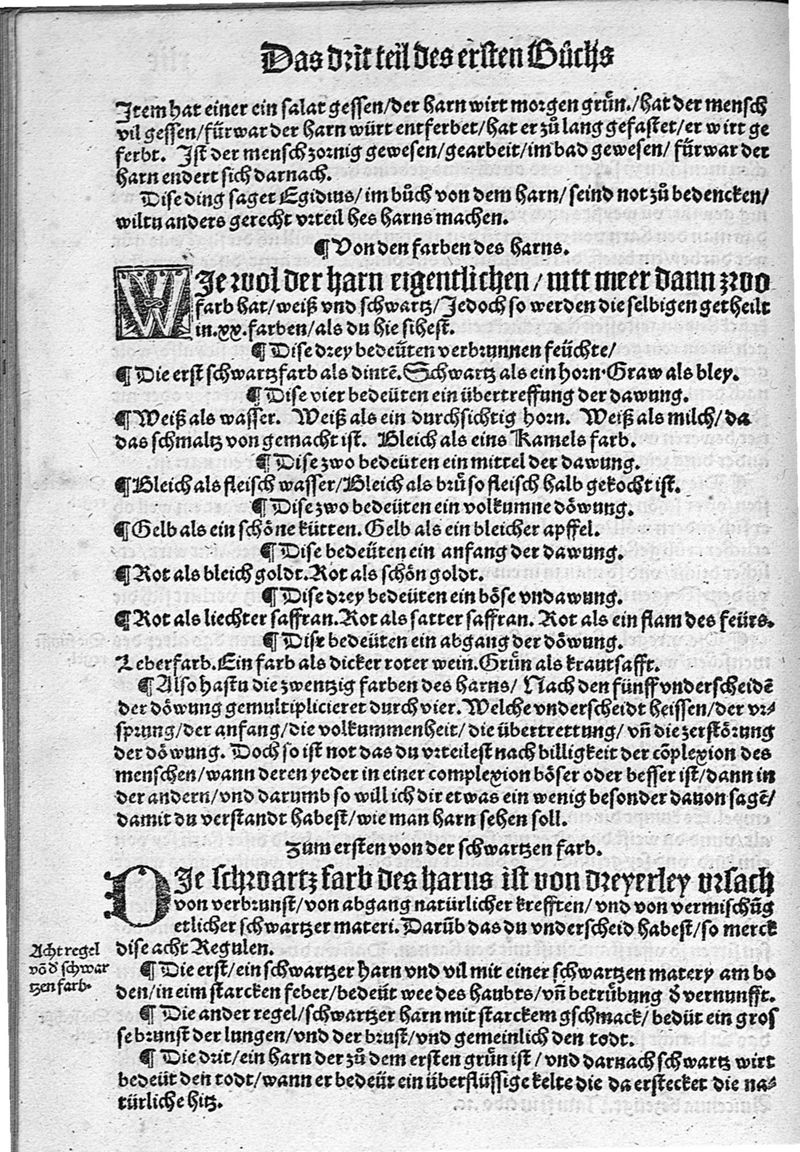 Das drit teil des ersten Bůchs
Item hat einer ein salat gessen/der harn wirt morgen grün./hat der mensch
vil gessen/fürwar der harn würt entferbet/hat er zů lang gefastet/er wirt ge
ferbt. Ist der mensch zornig gewesen/gearbeit/im bad gewesen/ fürwar der
harn endert sich darnach.
Dise ding saget Egidius/im bůch von dem harn/seind not zů bedencken/
wiltu anders gerecht vrteil hes harns machen.
¶Von den farben des harns.
WIe wol der harn eigentlichen/nitt meer dann zwo
farb hat/weiß vnd schwartz/Jedoch so werden die selbigen getheilt
in.xx.farben/als du hie sihest.
¶Dise drey bedeüten verbrunnen feüchte/
¶Die erst schwartzfarb als dintē.Schwartz als ein horn.Graw als bley.
¶Dise vier bedeüten ein übertreffung der dawung.
¶Weiß als wasser. Weiß als ein durchsichtig horn. Weiß als milch/da
das schmaltz von gemacht ist. Bleich als eins Kamels farb.
¶Dise zwo bedeüten ein mittel der dawung.
¶Bleich als fleisch wasser/Bleich als brü so fleisch halb gekocht ist.
¶Dise zwo bedeüten ein volkumne döwung.
¶Gelb als ein schöne kütten.Gelb als ein bleicher apffel.
¶Dise bedeüten ein anfang der dawung.
¶Rot als bleich goldt.Rot als schön goldt.
¶Dise drey bedeüten ein böse vndawung.
¶Rot als liechter saffran.Rot als satter saffran. Rot als ein flam des feürs.
¶Dise bedeüten ein abgang der döwung.
Leberfarb.Ein farb als dicker roter wein.Grün als krautsafft.
¶Also hastu die zwentzig farben des harns/ Nach den fünff vnderscheidē
der döwung gemultiplicieret durch vier.Welche vnderscheidt heissen/der vr-
sprung/der anfang/die volkummenheit/die übertrettung/ vñ die zerstörung
der döwung. Doch so ist not das du vrteilest nach billigkeit der cōplexion des
menschen/wann deren yeder in einer complexion böser oder besser ist/dann in
der andern/vnd darumb so will ich dir etwas ein wenig besonder dauon sagē/
damit du verstandt habest/wie man harn sehen soll.
Zum ersten von der schwartzen farb.
DIe schwartz farb des harns ist von dreyerley vrsach
von verbrunst/von abgang natürlicher krefften/vnd von vermischūg
etlicher schwartzer materi. Darūb das du vnderscheid habest/so merck
dise acht Regulen.
Acht regel
vō d̄ schwar
tzen farb.
¶Die erst/ein schwartzer harn vnd vil mit einer schwartzen matery am bo
den/in eim starcken feber/bedeüt wee des haubts/vñ betrübung d̄ vernunfft.
¶Die ander regel/schwartzer harn mit starckem gschmack/bedüt ein gros
se brunst der lungen/vnd der brust/vnd gemeinlich den todt.
¶Die drit/ein harn der zů dem ersten grün ist/vnd darnach schwartz wirt
bedeüt den todt/wann er bedeüt ein überflüssige kelte die da erstecket die na-
türliche hitz.